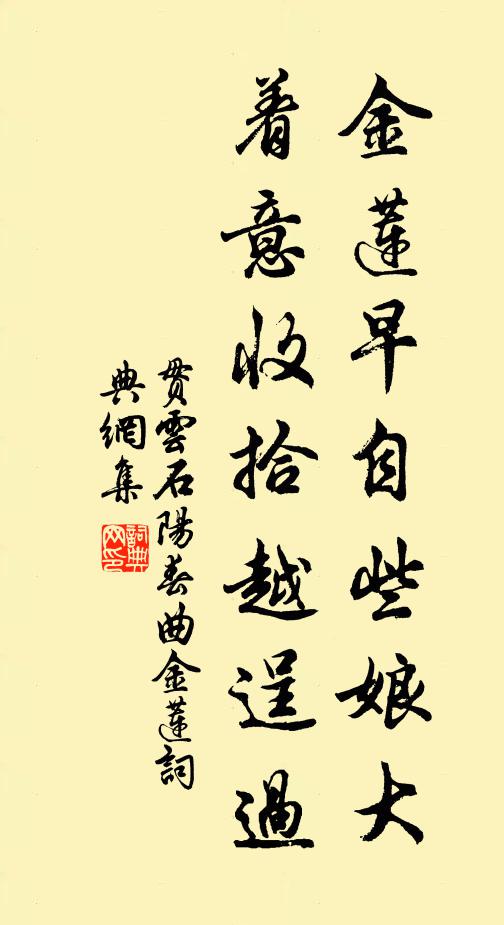 金蓮早自些娘大
着意收拾越逞過
貫雲石陽春曲金蓮詞
典網集
詞典网印